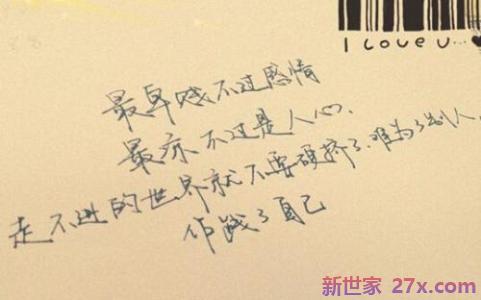 I Love u...
最卑贱不过感情
最凉不过是人心.
走不进的世界就不要硬挤了.难为了别人,
作践了自己
新世家 27x.com